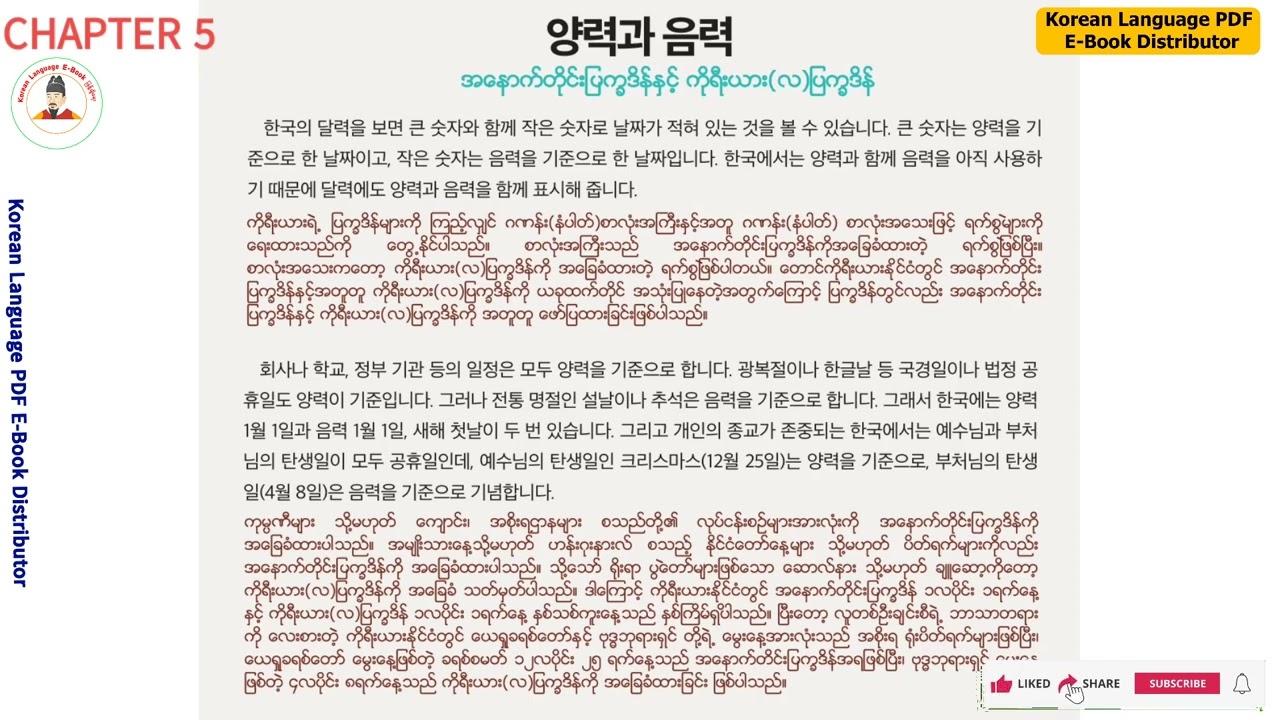 CHAPTER 5
양력과 음력
Korean Language PDF
E-Book Distributor
Korean Language E-Book
အနောက်တိုင်းပြက္ခဒိန်နှင့် ကိုရီးယား(လ)ပြက္ခဒိန်
한국의 달력을 보면 큰 숫자와 함께 작은 숫자로 날짜가 적혀 있는 것을 볼 수 있습니다. 큰 숫자는 양력을 기
준으로 한 날짜이고, 작은 숫자는 음력을 기준으로 한 날짜입니다. 한국에서는 양력과 함께 음력을 아직 사용하
기 때문에 달력에도 양력과 음력을 함께 표시해 줍니다.
ကိုရီးယားရဲ့ ပြက္ခဒိန်များကို ကြည့်လျှင် ဂဏန်း(နံပါတ်)စာလုံးအကြီးနှင့်အတူ ဂဏန်း(နံပါတ်) စာလုံးအသေးဖြင့် ရက်စွဲများကို
ရေးထားသည်ကို တွေ့နိုင်ပါသည်။ စာလုံးအကြီးသည် အနောက်တိုင်းပြက္ခဒိန်ကိုအခြေခံထားတဲ့ ရက်စွဲဖြစ်ပြီး၊
စာလုံးအသေးကတော့ ကိုရီးယား(လ)ပြက္ခဒိန်ကို အခြေခံထားတဲ့ ရက်စွဲဖြစ်ပါတယ်။ တောင်ကိုရီးယားနိုင်ငံတွင် အနောက်တိုင်း
ပြက္ခဒိန်နှင့်အတူတူ ကိုရီးယား(လ)ပြက္ခဒိန်ကို ယခုထက်တိုင် အသုံးပြုနေတဲ့အတွက်ကြောင့် ပြက္ခဒိန်တွင်လည်း အနောက်တိုင်း
ပြက္ခဒိန်နှင့် ကိုရီးယား(လ)ပြက္ခဒိန်ကို အတူတူ ဖော်ပြထားခြင်းဖြစ်ပါသည်။
회사나 학교, 정부 기관 등의 일정은 모두 양력을 기준으로 합니다. 광복절이나 한글날 등 국경일이나 법정 공
휴일도 양력이 기준입니다. 그러나 전통 명절인 설날이나 추석은 음력을 기준으로 합니다. 그래서 한국에는 양력
1월 1일과 음력 1월 1일, 새해 첫날이 두 번 있습니다. 그리고 개인의 종교가 존중되는 한국에서는 예수님과 부처
님의 탄생일이 모두 공휴일인데, 예수님의 탄생일인 크리스마스(12월 25일)는 양력을 기준으로, 부처님의 탄생
일(4월 8일)은 음력을 기준으로 기념합니다.
ကုမ္ပဏီများ သို့မဟုတ် ကျောင်း၊ အစိုးရဌာနများ စသည်တို့၏ လုပ်ငန်းစဉ်များအားလုံးကို အနောက်တိုင်းပြက္ခဒိန်ကို
အခြေခံထားပါသည်။ အမျိုးသားနေ့သို့မဟုတ် ဟန်းဂူးနားလ် စသည့် နိုင်ငံတော်နေ့များ သို့မဟုတ် ပိတ်ရက်များကိုလည်း
အနောက်တိုင်းပြက္ခဒိန်ကို အခြေခံထားပါသည်။ သို့သော် ရိုးရာ ပွဲတော်များဖြစ်သော ဆောလ်နား သို့မဟုတ် ချူဆော့ကိုတော့
ကိုရီးယား(လ)ပြက္ခဒိန်ကို အခြေခံ သတ်မှတ်ပါသည်။ ဒါကြောင့် ကိုရီးယားနိုင်ငံတွင် အနောက်တိုင်းပြက္ခဒိန် ၁လပိုင်း ၁ရက်နေ့
နှင့် ကိုရီးယား(လ)ပြက္ခဒိန် ၁လပိုင်း ၁ရက်နေ့ နှစ်သစ်ကူးနေ့သည် နှစ်ကြိမ်ရှိပါသည်။ ပြီးတော့ လူတစ်ဦးချင်းစီရဲ့ ဘာသာတရား
ကို လေးစားတဲ့ ကိုရီးယားနိုင်ငံတွင် ယေရှုခရစ်တော်နှင့် ဗုဒ္ဓဘုရားရှင် တို့ရဲ့ မွေးနေ့အားလုံးသည် အစိုးရ ရုံးပိတ်ရက်များဖြစ်ပြီး၊
ယေရှုခရစ်တော် မွေးနေ့ဖြစ်တဲ့ ခရစ်စမတ် ၁၂လပိုင်း ၂၅ ရက်နေ့သည် အနောက်တိုင်းပြက္ခဒိန်အရဖြစ်ပြီး၊ ဗုဒ္ဓဘုရားရှင် မွေးနေ့
ဖြစ်တဲ့ ၄လပိုင်း ၈ရက်နေ့သည် ကိုရီးယား(လ)ပြက္ခဒိန်ကို အခြေခံထားခြင်း ဖြစ်ပါသည်။
Korean Language PDF E-Book Distributor
LIKED SHARE SUBSCRIBE